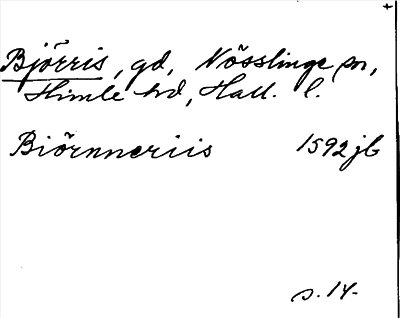 +
Björris, gd, Nösslinge sn,
Himle hd, Hall. l.
Biörnneriis 1592 jb
s. 14.